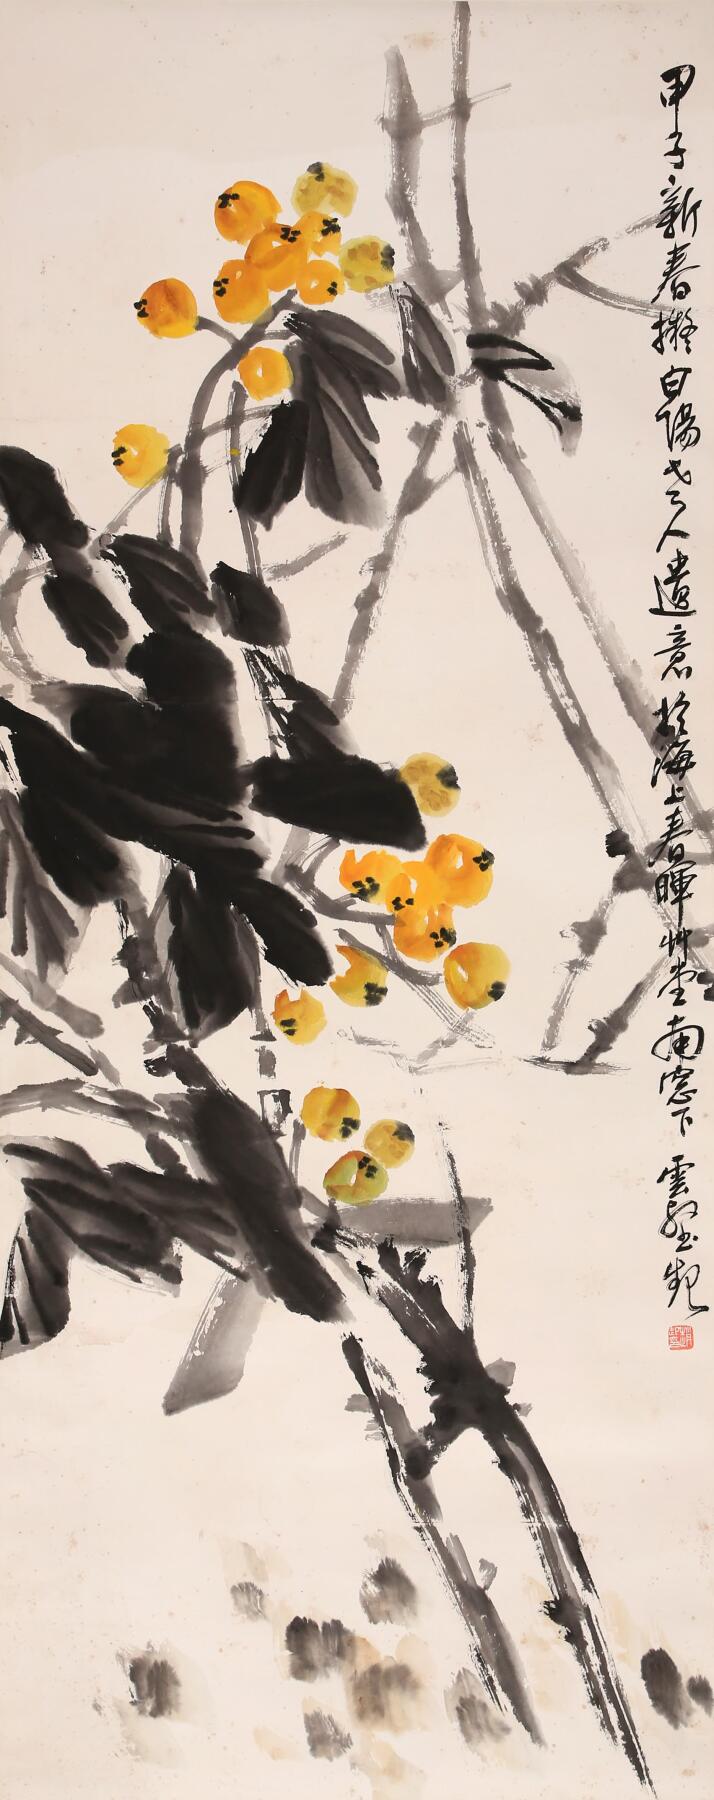 甲子新春擬白陽老人遺意於海上春暉艸堂南窓下 雲壑赵